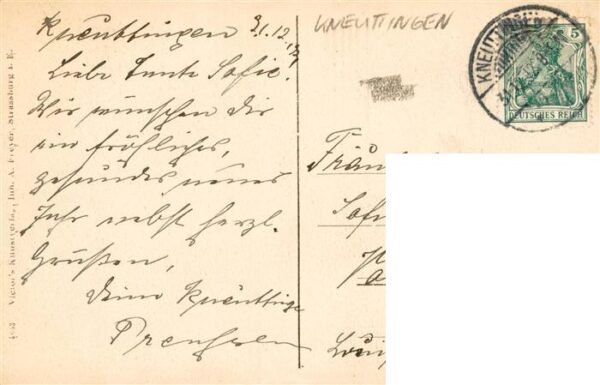 Kneuttingen 31.12.
Liebe Tante Sofie!
Wir wünschen Dir
ein fröhliches,
gesundes neues
Jahr nebst herzl.
Grüßen,
Deine Kneuttinger
KNEUTTINGEN
KNEUTTINGEN
5
DEUTSCHES REICH
Fräu
Sofi
Victor's Kunstverlag, Inh. A. Freyer, Strassburg i. E.